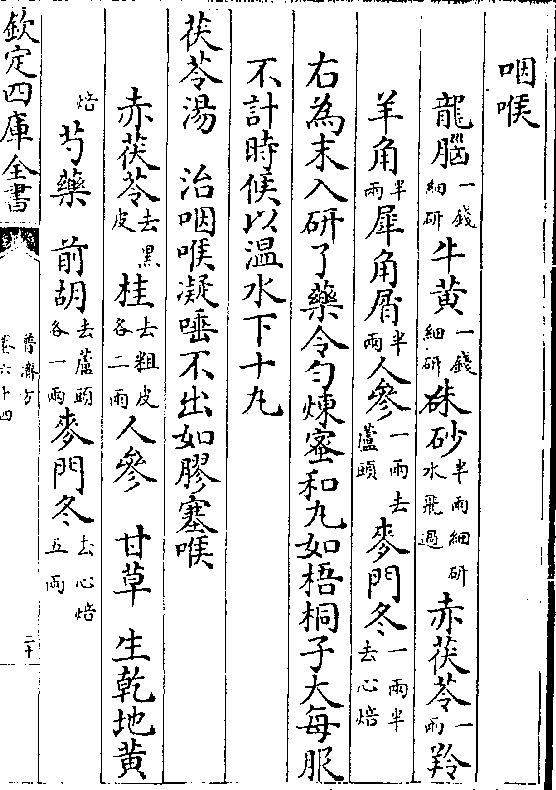 咽喉
龍腦一錢細研牛黄一錢細研硃砂半兩細研水飛過赤茯苓一兩羚
羊角半兩犀角屑半兩人參一兩去蘆頭麥門冬一兩半去心焙
右為末入研了藥令勻煉蜜和丸如梧桐子大每服
不計時候以温水下十丸
茯苓湯　治咽喉凝唾不出如膠塞喉
赤茯苓去黑皮桂去粗皮各二兩人參　甘草　生乾地黄
焙芍藥　前胡去蘆頭各一兩麥門冬去心焙五兩
欽定四庫全書　普濟方卷六十四　二十